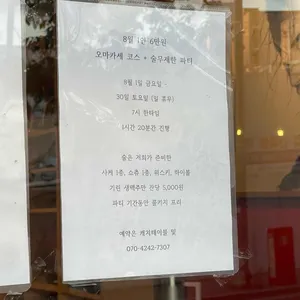 8월 1인 6만원
오마카세 코스 + 술무제한 파티
9월 1일 금요일
30일 토요일 (일 휴무)
7시 한타임
1시간 20분간 진행
술은 저희가 준비한
사케 1종, 소츄 1종, 위스키, 하이볼
기린 생맥주만 잔당 5,000원
파티 기간동안 콜키지 프리
예약은 캐치테이블 및
070-4242-7307